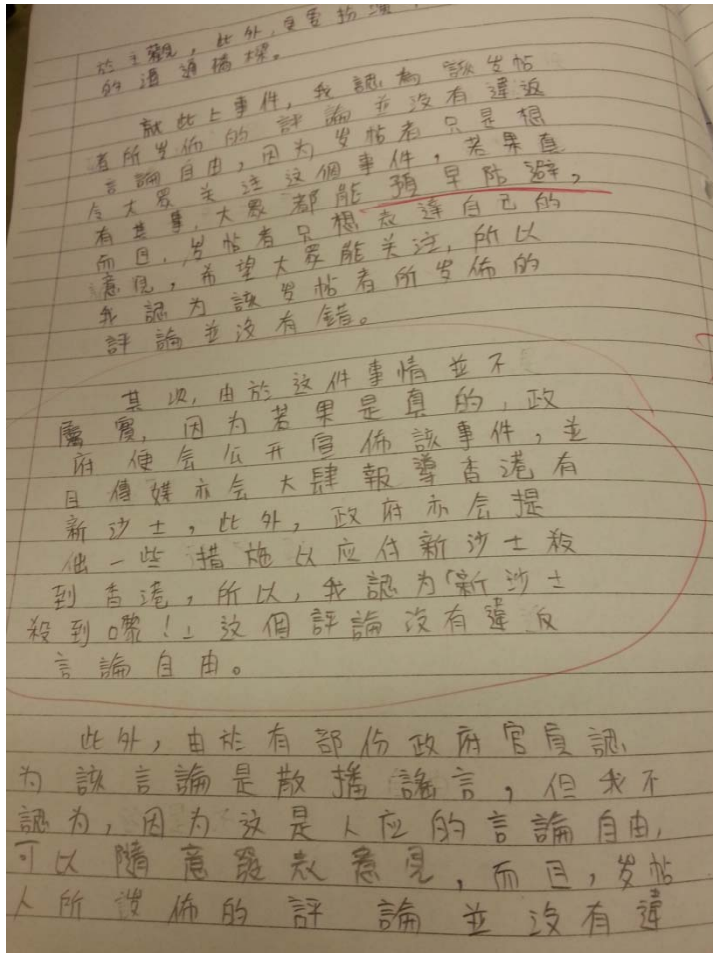 於主觀，此外，更要扮演
的溝通橋樑。
就此上事件，我認為該发帖
者所发佈的評論並没有違返
言論自由，因为发帖者只是想
令大眾关注这個事件，若果真
有其事，大眾都能預早防避，
而且，发帖者只想表達自己的
意見，希望大眾能关注，所以
我認为該发帖者所发佈的
評論並沒有錯。
其次，由於这件事情並不
屬實，因为若果是真的，政
府便会公开宣佈該事件，並
且傳媒亦会大肆報導香港有
新沙士，此外，政府亦会提
出一些措施以应付新沙士殺
到香港，所以，我認为「新沙士
殺到嚟！」这個評論沒有違反
言論自由。
此外，由於有部份政府官員認
为該言論是散播謠言，但我不
認为，因为这是人应的言論自由，
可以隨意發表意見，而且，发帖
人所发佈的評論並没有違